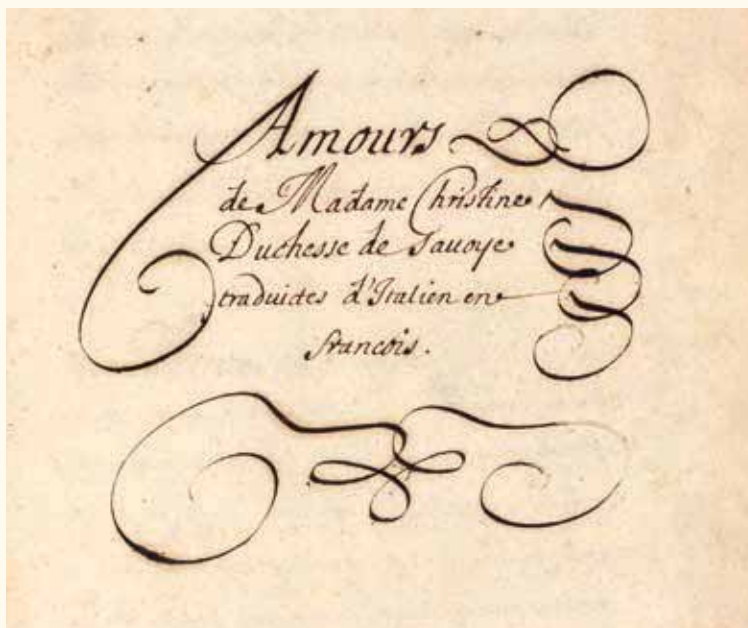 Amours
de Madame Christine
Duchesse de Sauoye
traduictes d'Italien en
francois.